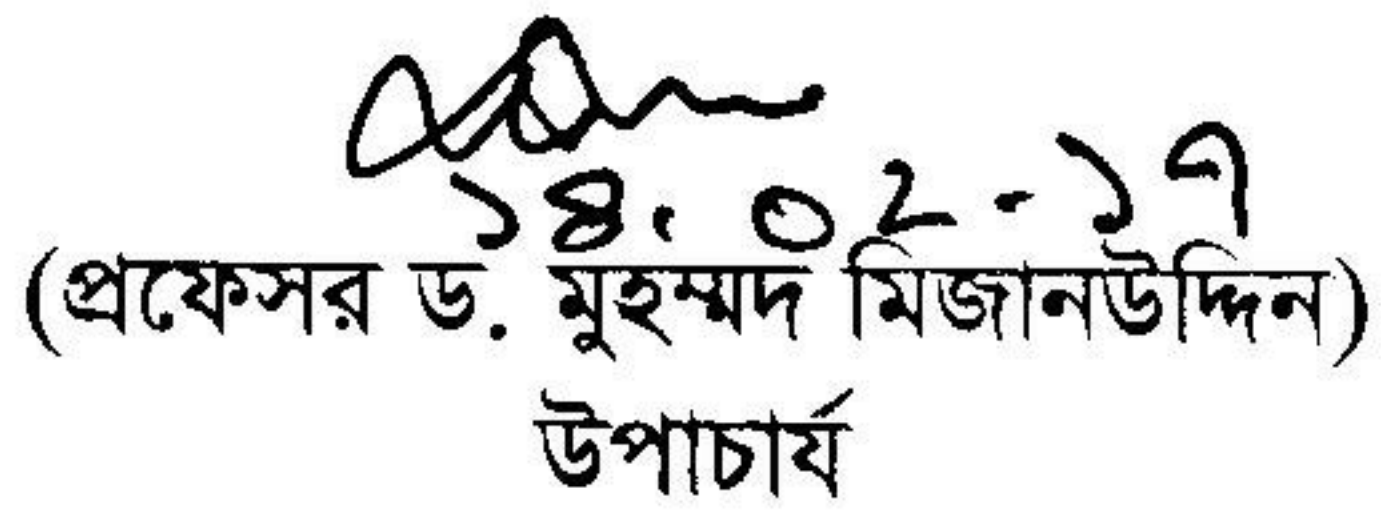 ১৪. ০২-১৭
(প্রফেসর ড. মুহম্মদ মিজানউদ্দিন)
উপাচার্য